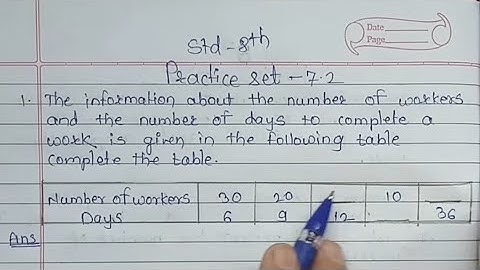 Date
Page
Std - 8th
Practice set - 7.2
1. The information about the number of workers
and the number of days to complete a
work is given in the following table
complete the table.
Number of workers 30 20 10
Days 6 9 12 36
Ans